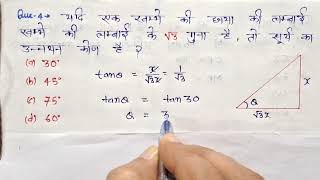 Que-4→ यदि एक खम्भे की छाया की लम्बाई
खम्भे की लम्बाई के √3 गुना है, तो सूर्य का
उन्नयन कोण है ?
(a) 30°
(b) 45°
(c) 75°
(d) 60°
tanθ = x/√3x = 1/√3
tanθ = tan30
θ = 3
x
θ
√3x